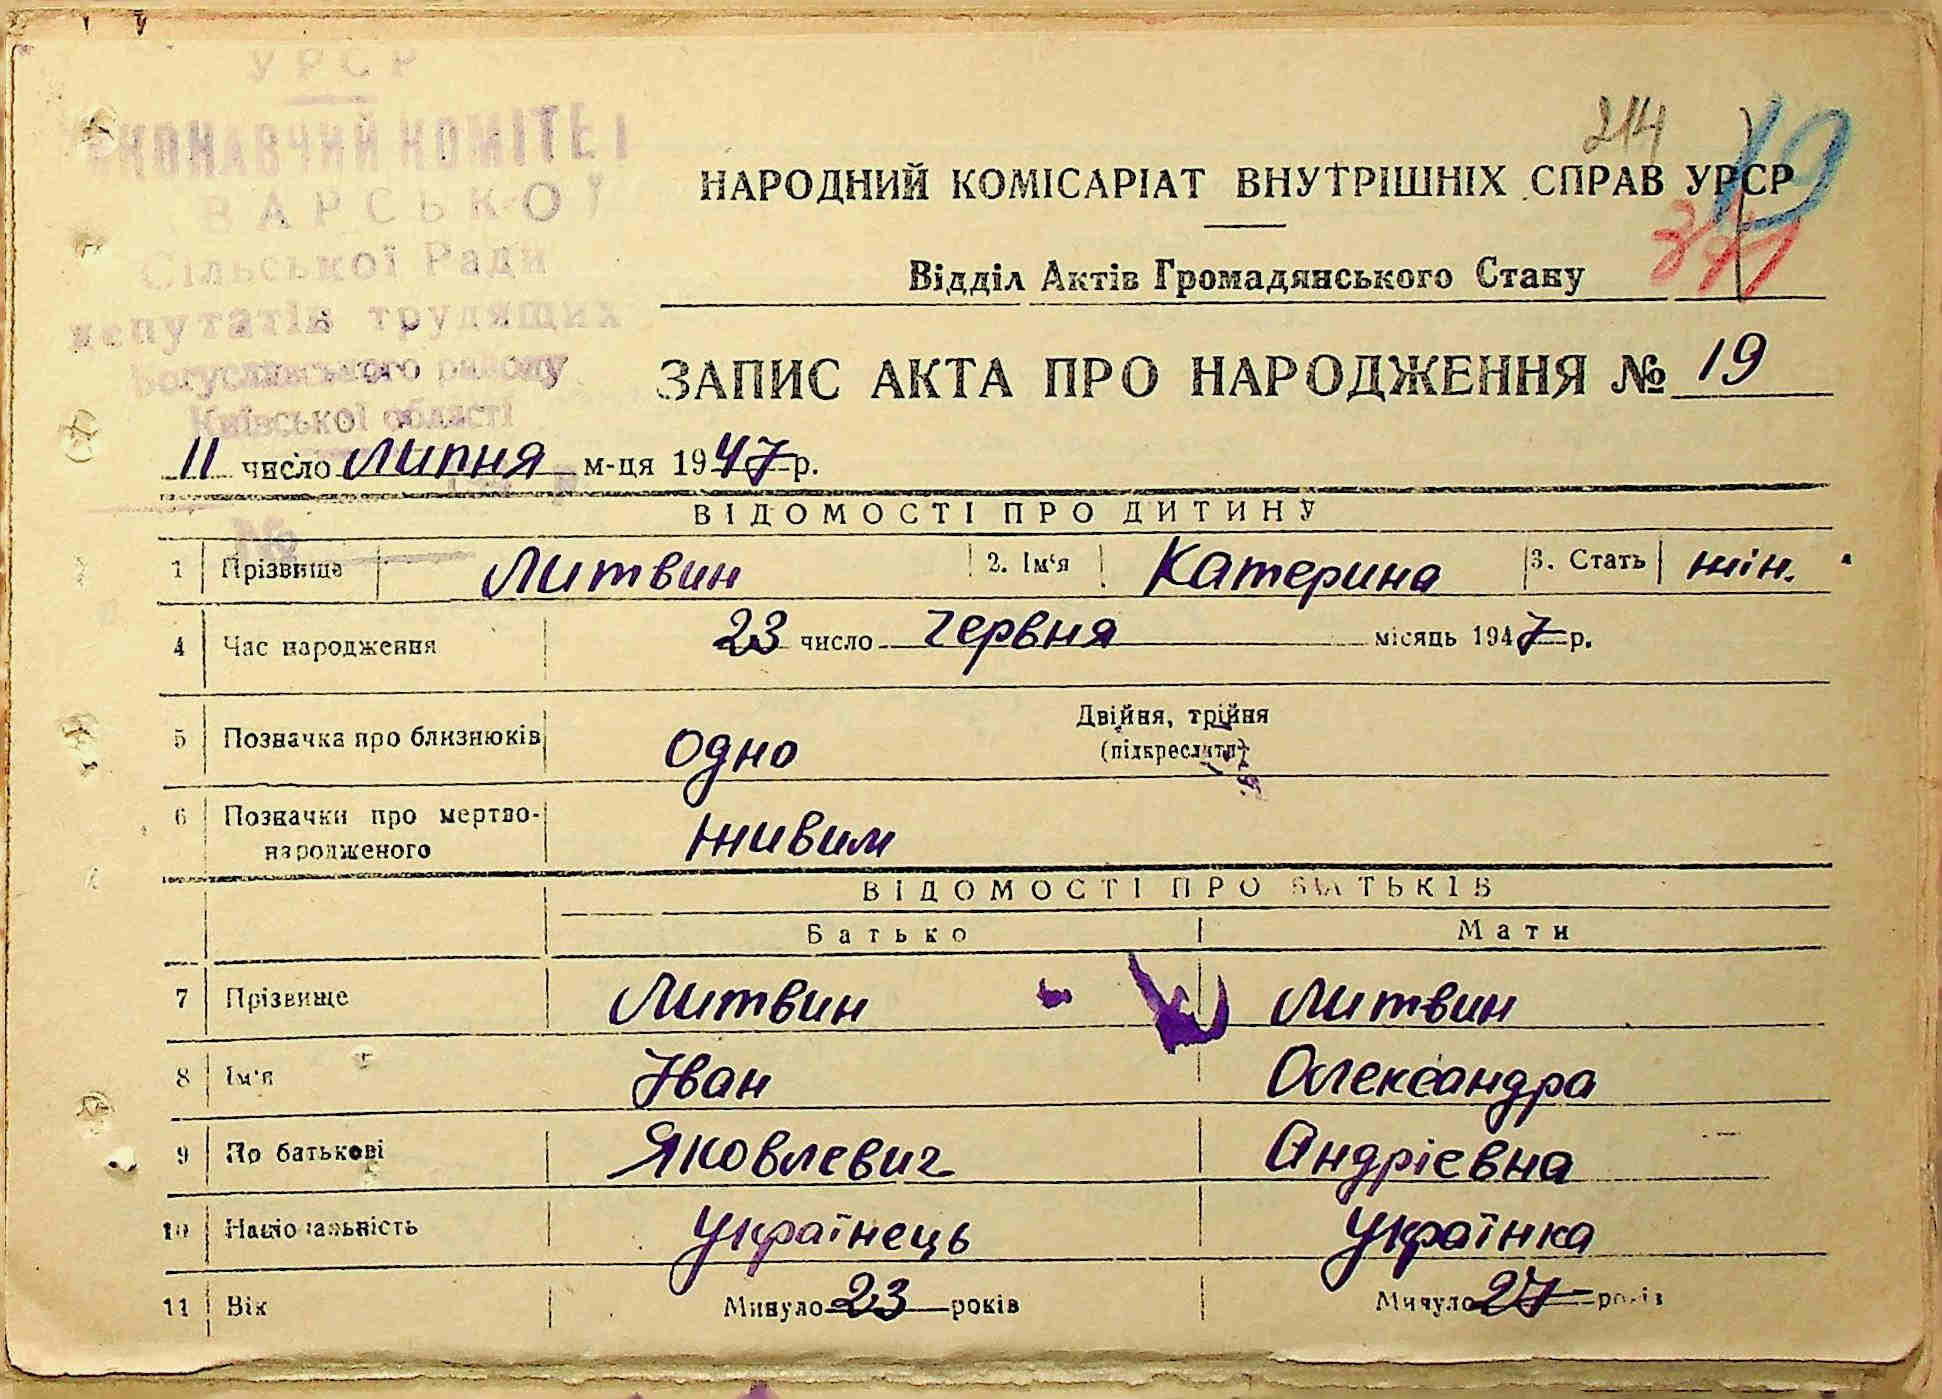 УРСР
КОНАВЧИЙ КОМІТЕТ
ВАРСЬКОЇ
Сільської Ради
депутатів трудящих
Богуславського району
Київської області
№
214
19
371
НАРОДНИЙ КОМІСАРІАТ ВНУТРІШНІХ СПРАВ УРСР
Відділ Актів Громадянського Стану
ЗАПИС АКТА ПРО НАРОДЖЕННЯ № 19
11 число Липня м-ця 1947 р.
ВІДОМОСТІ ПРО ДИТИНУ
1 Прізвище Литвин 2. Ім'я Катерина 3. Стать жін.
4 Час народження 23 число Червня місяць 1947 р.
5 Позначка про близнюків Одно Двійня, трійня
(підкреслити)
6 Позначки про мертво-
народженого Живим
ВІДОМОСТІ ПРО БАТЬКІВ
Батько Мати
7 Прізвище Литвин Литвин
8 Ім'я Іван Олександра
9 По батькові Яковлевич Андрієвна
10 Національність Українець Українка
11 Вік Минуло 23 років Минуло 27 років